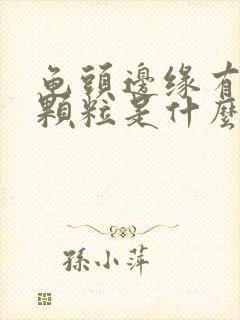 龟頭邊缘有
顆粒是什麼
孫小萍